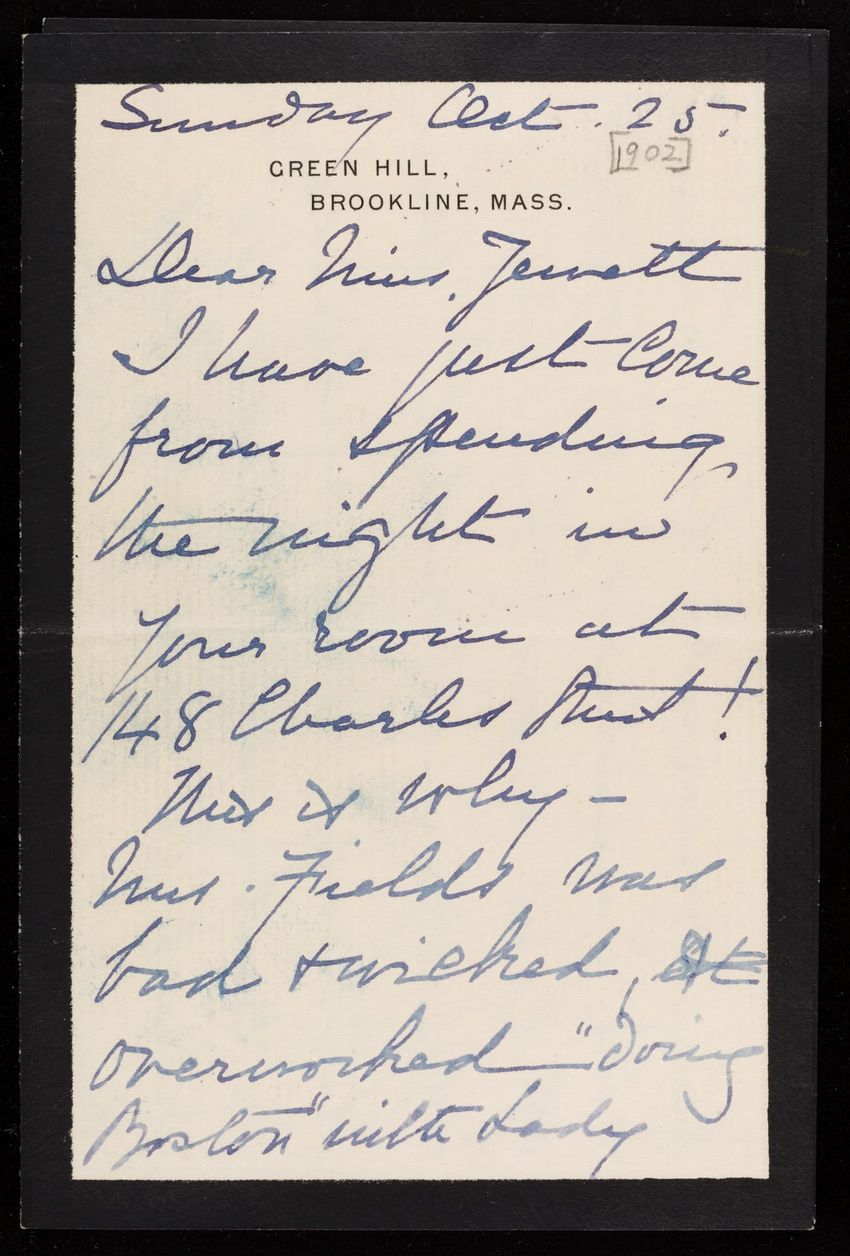 Sunday Oct. 25.
[1902]
GREEN HILL,
BROOKLINE, MASS.
Dear Miss. Jewett
I have just Come
from spending
the night in
your room at
148 Charles Street!
This is why –
Mrs. Fields was
bad & wicked,
overworked "doing
Boston" with Lady